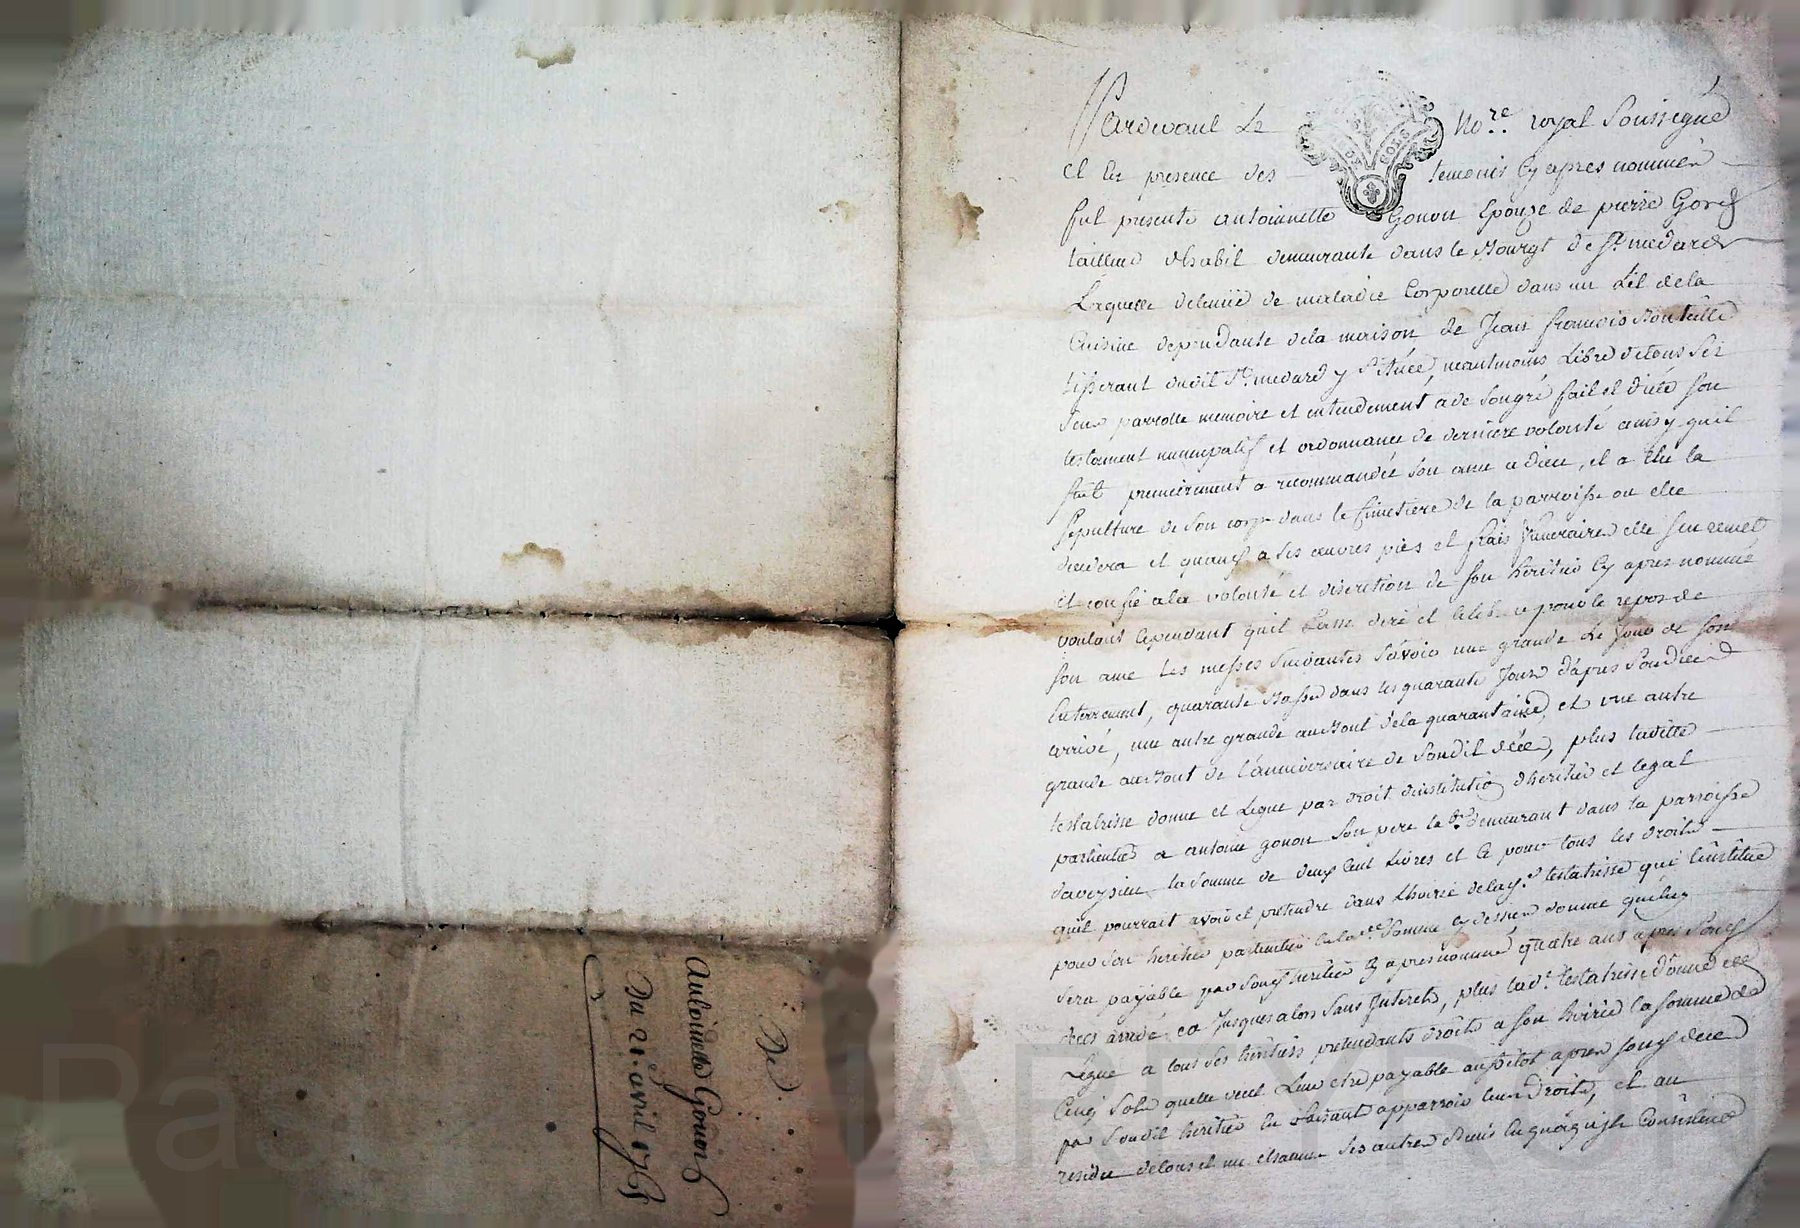 Pardevant Le Nore. royal Soussigné
et En presence des temoins Cy apres nommés
fut presente antoinette Gonon Epouze de pierre
tailleur dhabit demeurante dans le Bourgt de St. medard
Laquelle detenüe de maladie Corporelle dans un Lit de la
Cuisine dependante de la maison de Jean francois
tisserant dudit St. medard y Située, neantmoins Libre de tous Ses
Sens parolle memoire et entendement a de Son gré fait et dicté Son
testament nuncupatif et ordonnance de derniere volonté ainsy quil
Suit premierement a recommandée Son ame a dieu, et a Elu la
Sepulture de Son corps dans le Cimetiere de la parroisse ou elle
decedera et quand a Ses œuvres pies et frais funeraires elle Sen remet
et confie a la volonté et discretion de Son heritier Cy apres nommé
voulant Cependant quil Soit dire et Celebre pour le repos de
Son ame Les messes Suivantes Savoir une grande Le Jour de Son
Enterrement, quarante Basses dans les quarante Jours dapres Son deced
arrivé, une autre grande au Bout de la quarantaine, et une autre
grande au Bout de l'anniversaire de Sondit deced, plus laditte
testatrisse donne et Legue par droit dinstitution dheritier et legat
particulier a antoine gonon Son pere demeurant dans la parroisse
daveysieu la Somme de deux Cent Livres et Ce pour tous les droits
quil pourrait avoir et pretendre dans Lhoirie de lad. testatrisse qui L'institue
pour Son heritier particulier en lad. Somme Cy dessus donnée quelle
Sera payable par Sond. heritier Cy apres nommé quatre ans apres Sond.
deces arrivé et Jusques alors Sans Interets, plus lad. testatrisse donne et
Legue a tous Ses heritiers pretendants droits a Son hoirie la Somme de
Cinq Sols quelle veut Leur etre payable aussitot apres Sond. deced
par Sondit heritier En faisant apparroir leurs droits, et au
residu de tous et un chacuns Ses autres Biens En quoy quils Consistent
De
Antoinette Gonon
Du 21. avril 1768